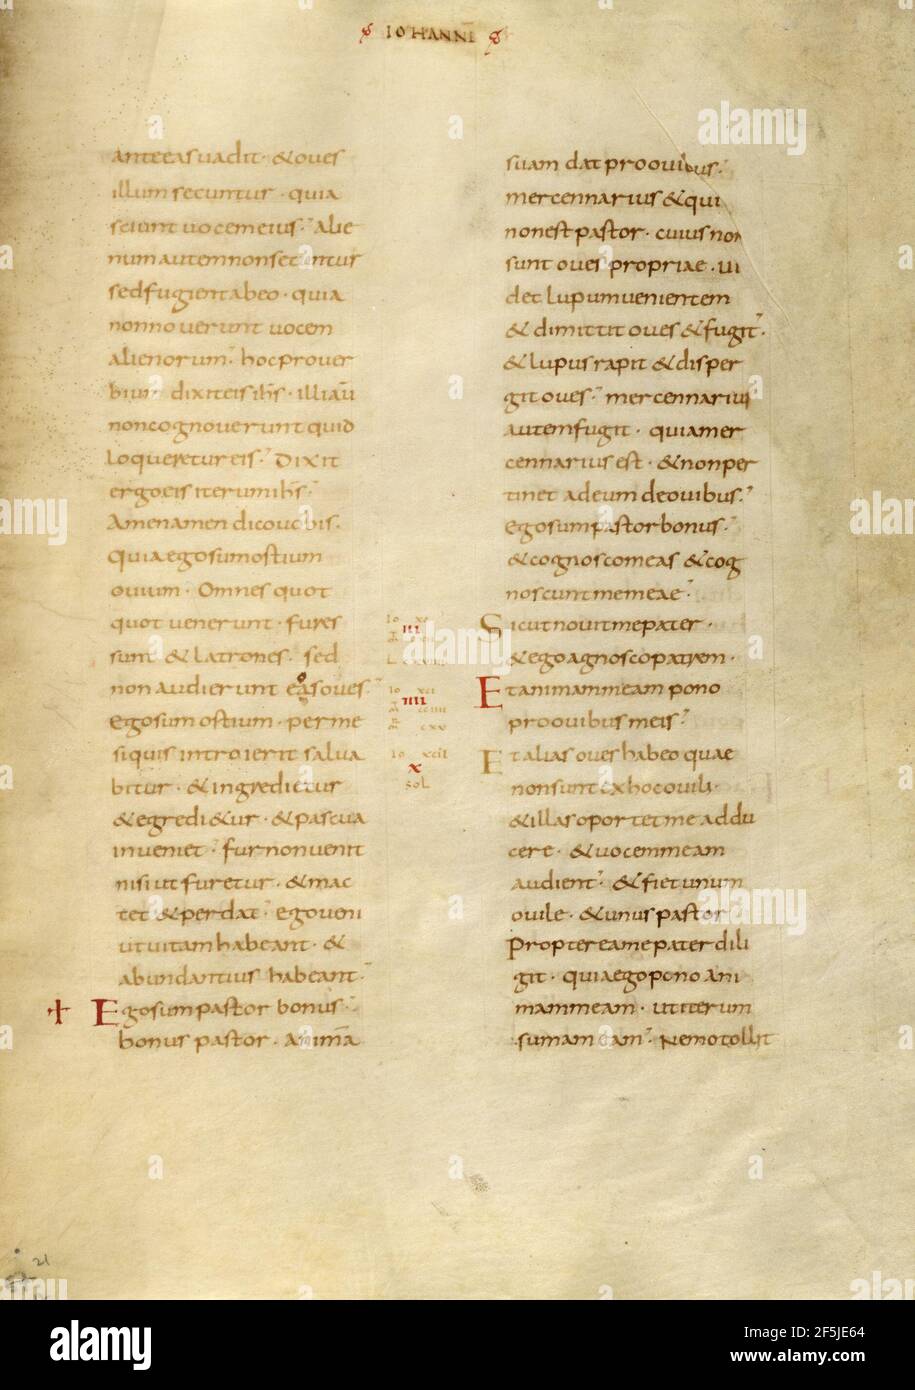 IOHANNĒ
anteeasuadit· &oues
illum secuntur· quia
sciunt uocemeius· Alie
numautemnonsecuntur
sedfugientabeo· quia
nonnouerunt uocem
alienorum· hocprouer
bium dixiteisihs· illiaū
noncognouerunt quid
loqueretureis· Dixit
ergoeis iterumihs·
Amenamen dicouobis·
quiaegosumostium
ouium· Omnes quot
quot uenerunt· fures
sunt &latrones· sed
nonaudierunt easoues·
egosum ostium· perme
siquis introierit salua
bitur· &ingredietur
&egredi&ur· &pascua
inueniet· furnonuenit
nisiutfuretur· &mac
tet &perdat· egoueni
utuitamhabeant· &
abundantius habeant·
Egosumpastor bonus·
bonus pastor· animā
suam dat proouibus·
mercennarius &qui
nonest pastor· cuius non
sunt oues propriae· ui
det lupumuenientem
& dimittit oues &fugit·
&lupus rapit &disper
git oues· mercennarius
autemfugit· quiamer
cennarius est· &nonper
tinet adeum deouibus·
egosumpastorbonus·
&cognoscomeas &cog
noscuntmemeae·
Io xc
III
Sicutnouitmepater·
&egoagnoscopatrem·
Io xci
IIII
Etanimammeam pono
proouibus meis·
Io xcii
X
Et alias oues habeo quae
sol
nonsunt exhocouili·
&illas oportet me addu
cere· &uocemmeam
audient· &fietunum
ouile· &unus pastor
Propterea me pater dili
git· quiaegopono ani
mammeam· utiterum
sumam eam· Nemotollit
21
alamy
Image ID: 2F5JE64
www.alamy.com